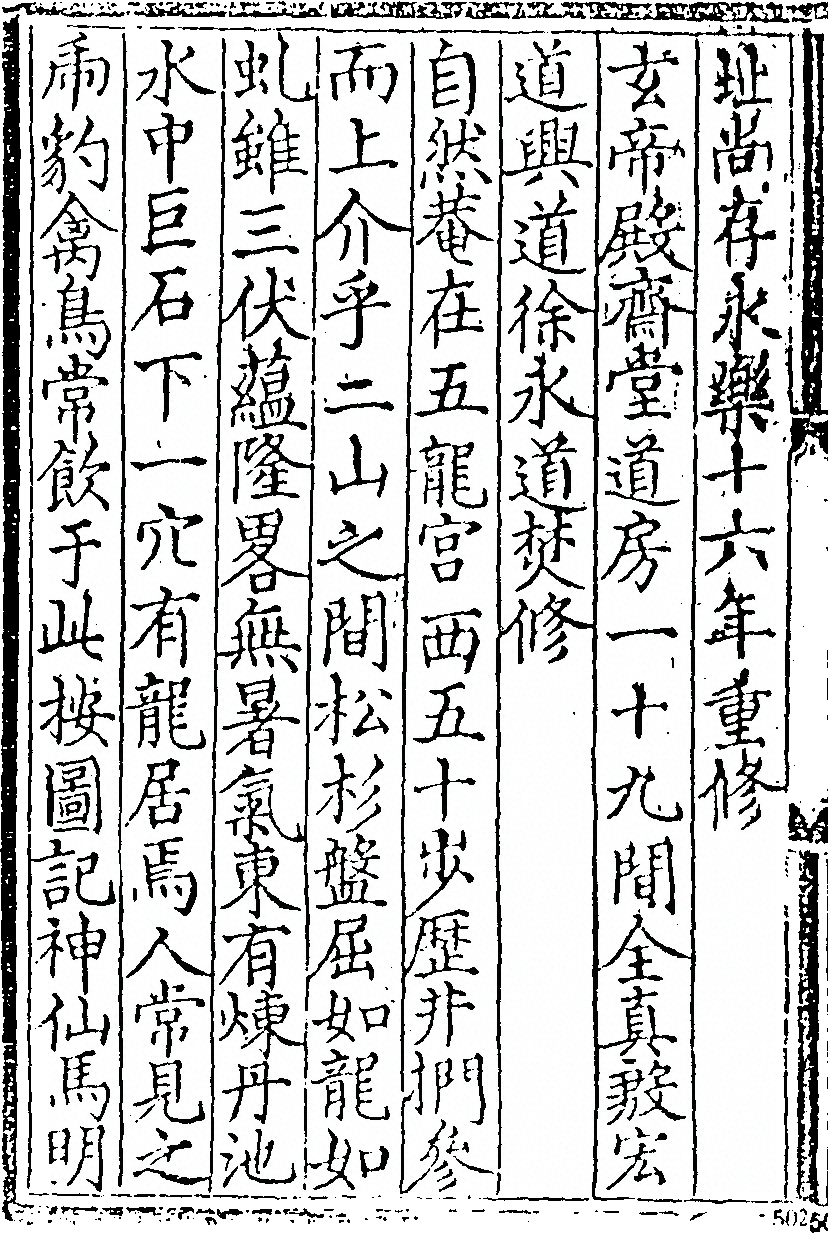 址尚存永樂十六年重修
玄帝殿齋堂道房一十九間全真毅宏
道興道徐永道焚修
自然菴在五龍宫西五十步歷非捫參
而上介乎二山之間松杉盤屈如龍如
虬雖三伏蘊隆畧無暑氣東有煉丹池
水中巨石下一穴有龍居焉人常見之
虎豹禽鳥常飲于此按圖記神仙馬明
502